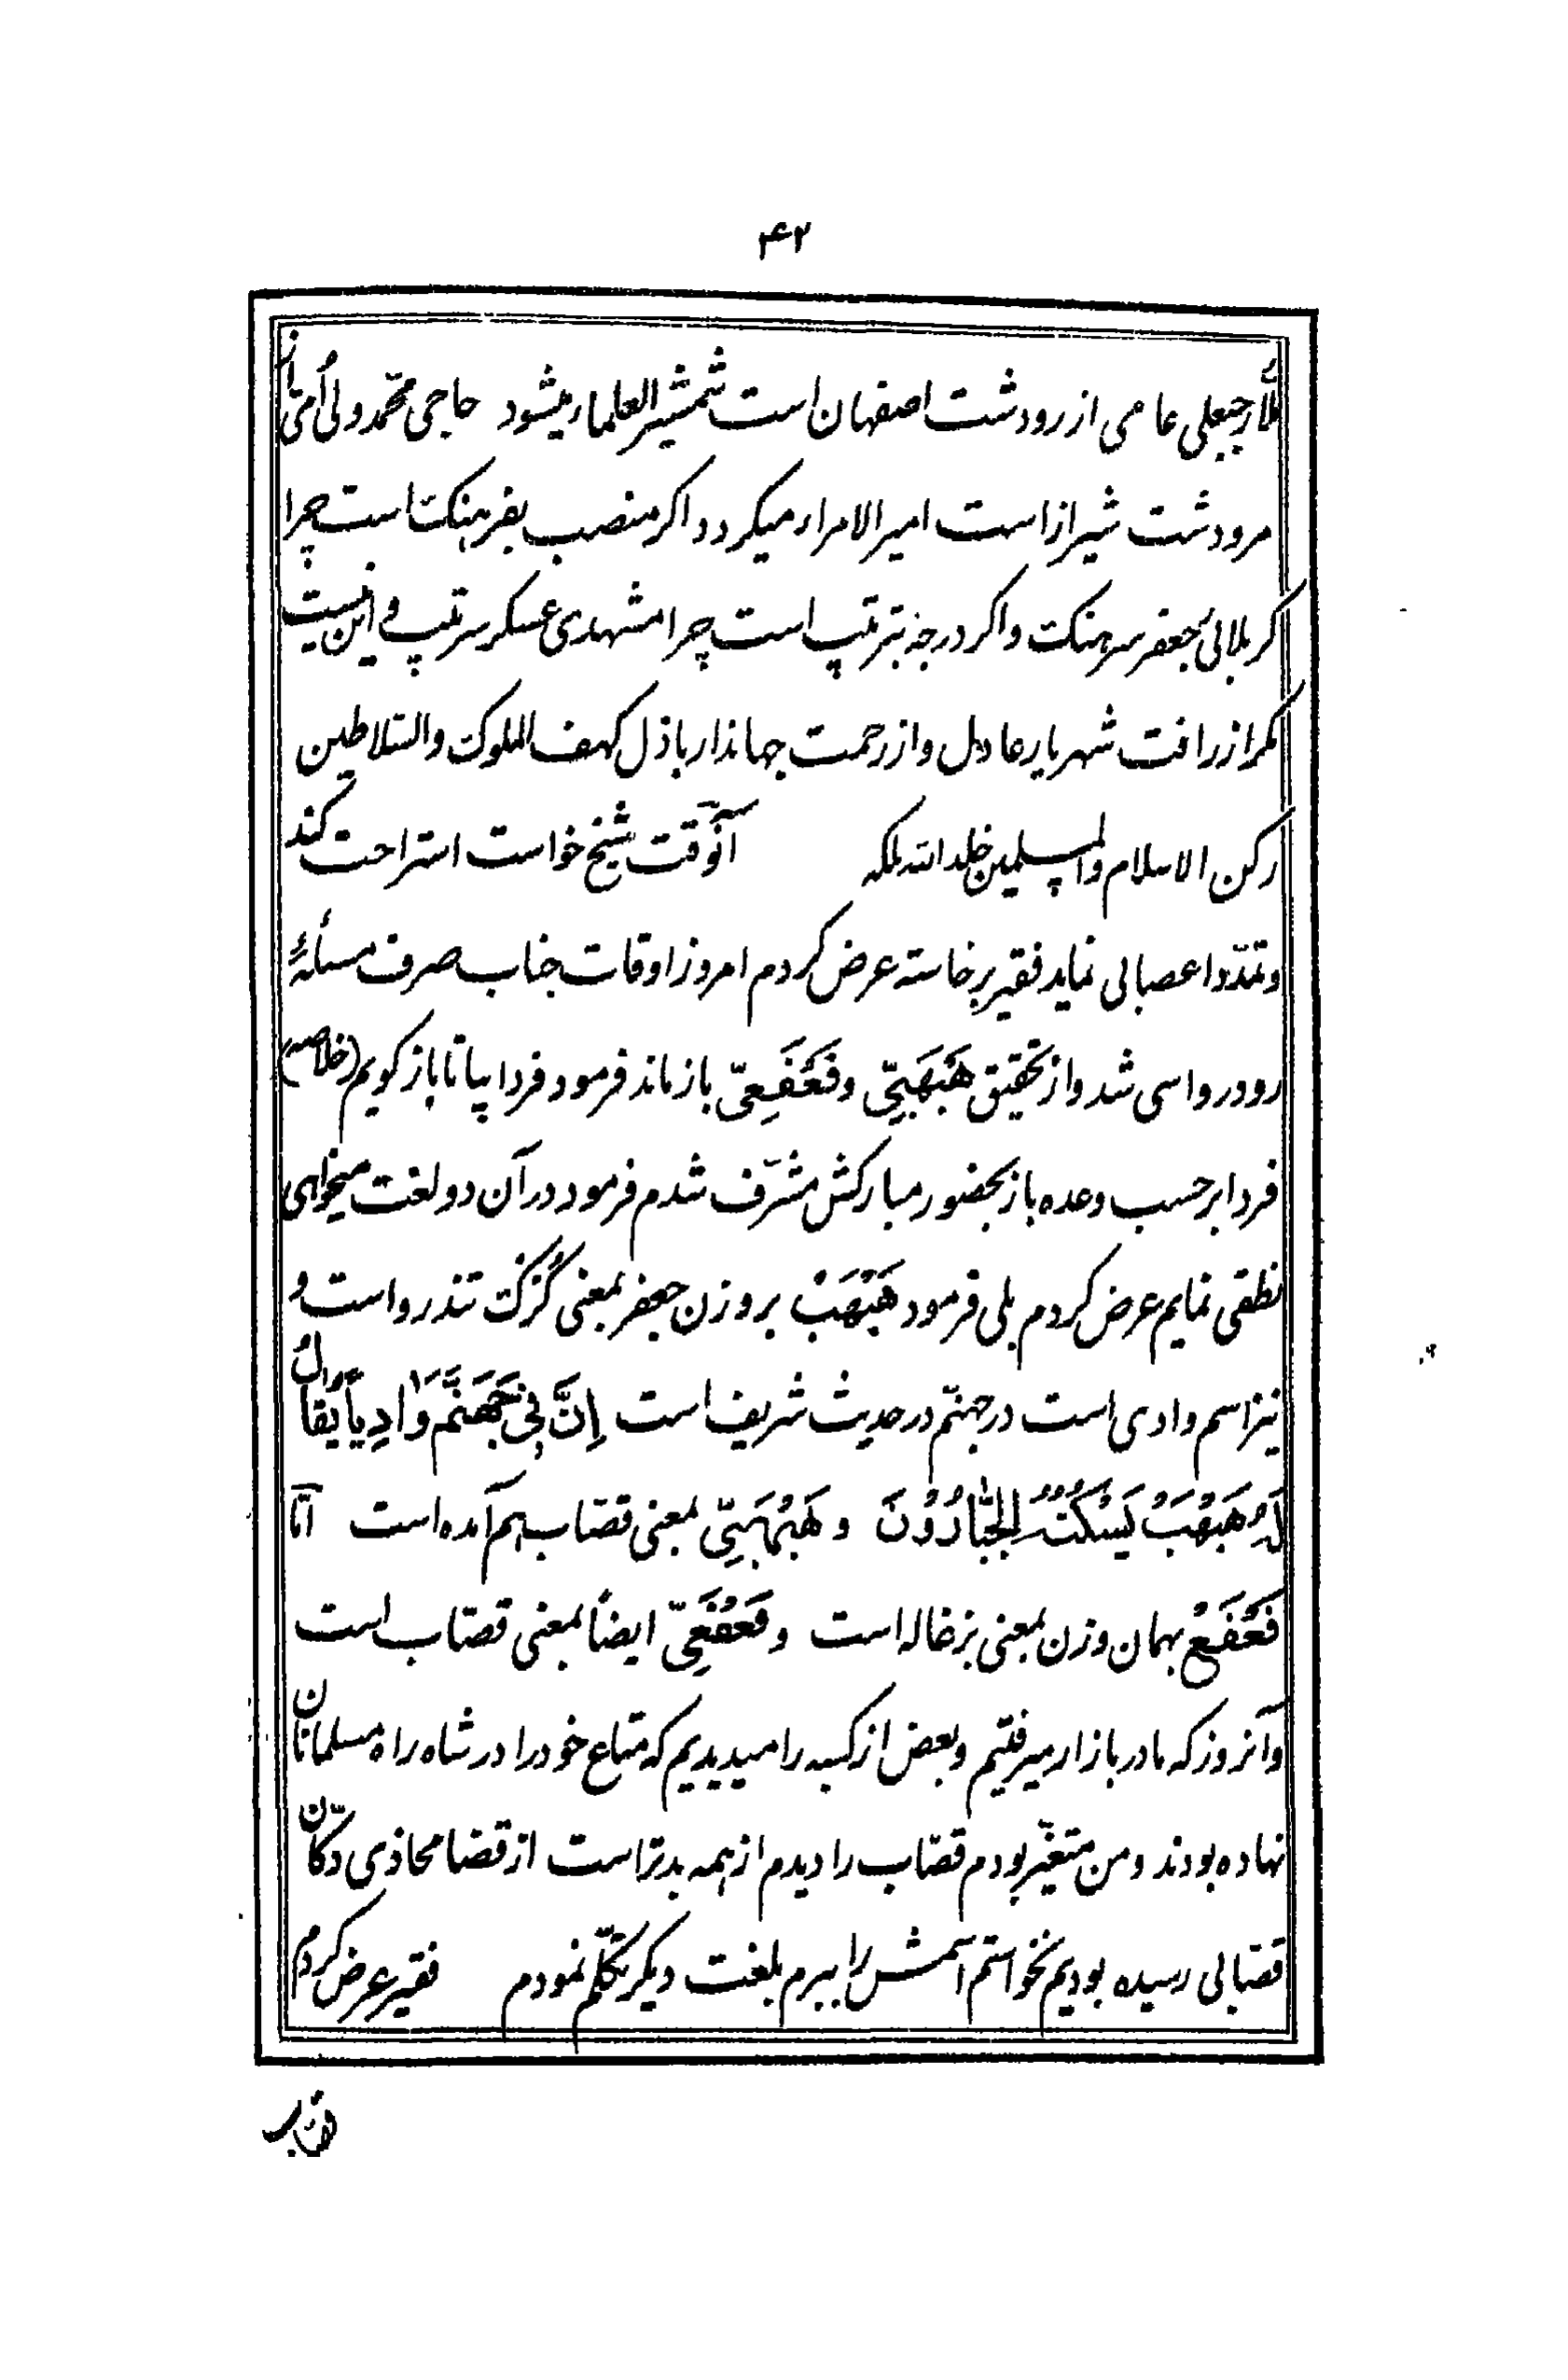 ۴۲
ملّا رجبعلی عامی از رودشت اصفهان است شمشیر العلماء میشود حاجی محمّد ولی اُمّی از
مرودشت شیراز است امیر الامراء میکردد اکر منصب بفرهنکت است چرا
کربلائی جعفر سرهنکت واکر درجه بترتیب است چرا مشهدی عسکر سرتیپ و این نیست
مکر از رافت شهریار عادل و از رحمت جهاندار باذل کهف الملوک والسّلاطین
رکن الاسلام والمسلمین خلد الله ملکه آنوقت شیخ خواست استراحت کند
وتمدّد اعصابی نماید فقیر برخاسته عرض کردم امروز اوقات جناب صرف مسئلهٔ
رودرواسی شد واز تحقیق هَبْهَبِیّ وفَعْفَعِیّ باز ماند فرمود فردا بیا تا باز کویم (خلاصه)
فردا برحسب وعده باز بحضور مبارکش مشرّف شدم فرمود در آن دو لغت میخواهی
نطقی نمایم عرض کردم بلی فرمود هَبْهَبْ بروزن جعفر بمعنی کُرْکْ تندرو است و
نیز اسم وادی است در جهنّم در حدیث شریف است اِنَّ فِی جَهَنَّمَ وَادِیاً یُقَالُ
لَهُ هَبْهَبُ یَسْکُنُهُ الجَبّارُوْنَ و هَبْهَبِیّ بمعنی قصّاب هم آمده است امّا
فَعْفَعْ بهمان وزن بمعنی بزغاله است و فَعْفَعِیّ ایضاً بمعنی قصّاب است
وآنروز که ما در بازار میرفتیم وبعض از کسبه را میدیدیم که متاع خود را در شاه راه مسلمانان
نهاده بودند ومن متغیّر بودم قصّاب را دیدم از همه بدتر است از قضا محاذی دکّان
قصّابی رسیده بودیم نخواستم اسمش را ببرم بلغت دیکر تکلّم نمودم فقیر عرض کردم